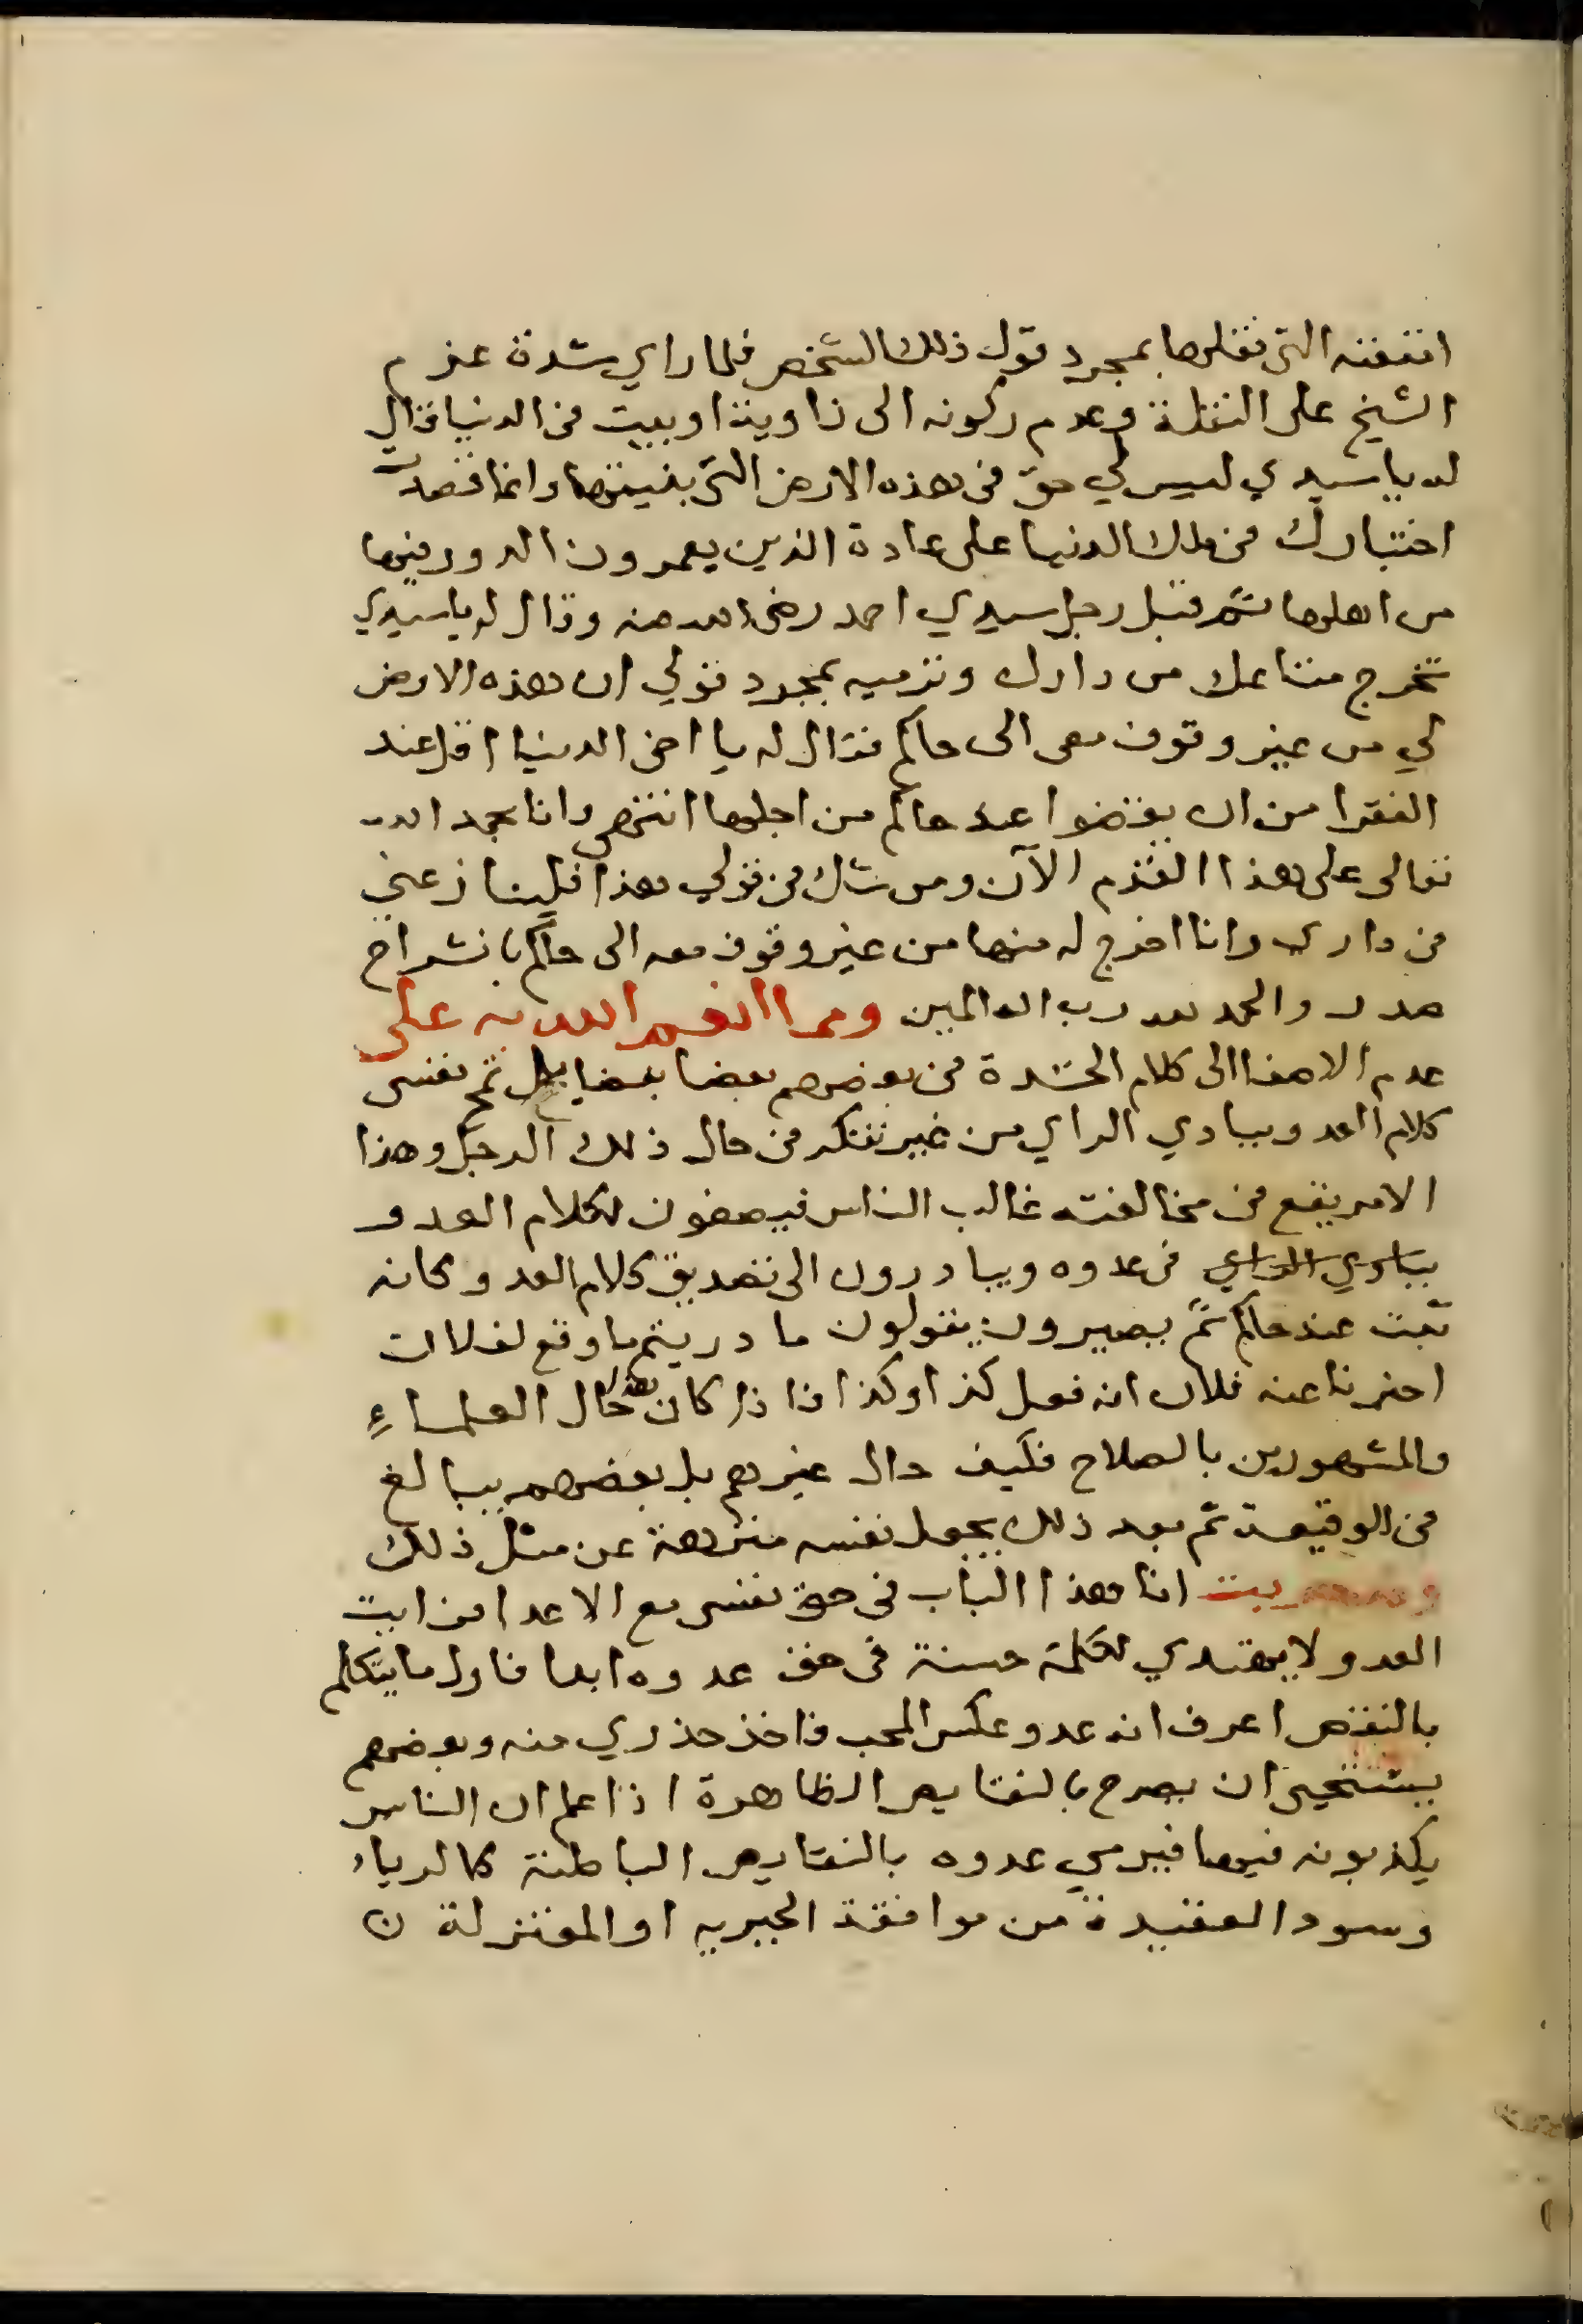 امتعته التى نقلها بمجرد قول ذلك الشخص فلما راي شدة عزم
الشيخ على النقلة وعدم ركونه الى زاوية او بيت فى الدنيا قال
له ياسيدي ليس لي حق فى هذه الارض التى بنيتها وانما قصدت
اختبارك فى ملك الدنيا على عادة الذين يعمرون الدور فيها
من اهلها ثم قبل رجل سيدي احمد رضى الله عنه وقال له ياسيدي
تخرج متاعك من دارك وترميه بمجرد قولي ان هذه الارض
لي من غير وقوف معى الى حاكم فقال له يا اخى الدنيا اقل عند
الفقرا من ان يقفوا عند حاكم من اجلها انتهى وانا بحمد الله
تعالى على هذا القدم الآن ومن شك فى قولي هذا فلينازعني
فى داري وانا اخرج له منها من غير وقوف معه الى حاكم بانشراح
صدر والحمد لله رب العالمين ومما انعم الله به على
عدم الاصغا الى كلام الحسدة فى بعضهم بعضا بل ثم نفسى
كلام العدو ببادي الراي من غير تفكر فى حال ذلك الرجل وهذا
الامر يقع فى مخالفته غالب الناس فيصغون لكلام العدو
ببادي الراي فى عدوه ويبادرون الى تصديق كلام العدو كانه
ثبت عند حاكم ثم يصيرون يقولون ما دريتم ما وقع لفلان
اخبرنا عنه فلان انه فعل كذا وكذا فاذا كان هذا حال العلماء
والمشهورين بالصلاح فكيف حال غيرهم بل بعضهم يبالغ
فى الوقيعة ثم بعد ذلك يجعل نفسه منزهة عن مثل ذلك
انا هذا الباب فى حق نفسى مع الاعدا فرايت
العدو لا يهتدي لكلمة حسنة فى حق عدوه ابدا فاول ما يتكلم
بالنقص اعرف انه عدو عكس المحب فاخذ حذري منه وبعضهم
يستحيى ان يصرح بالنقايص الظاهرة اذا علم ان الناس
يكذبونه فيها فيرمي عدوه بالنقايص الباطنة كالرياء
وسوء العقيدة من موافقة الجبريه او المعتزلة ن